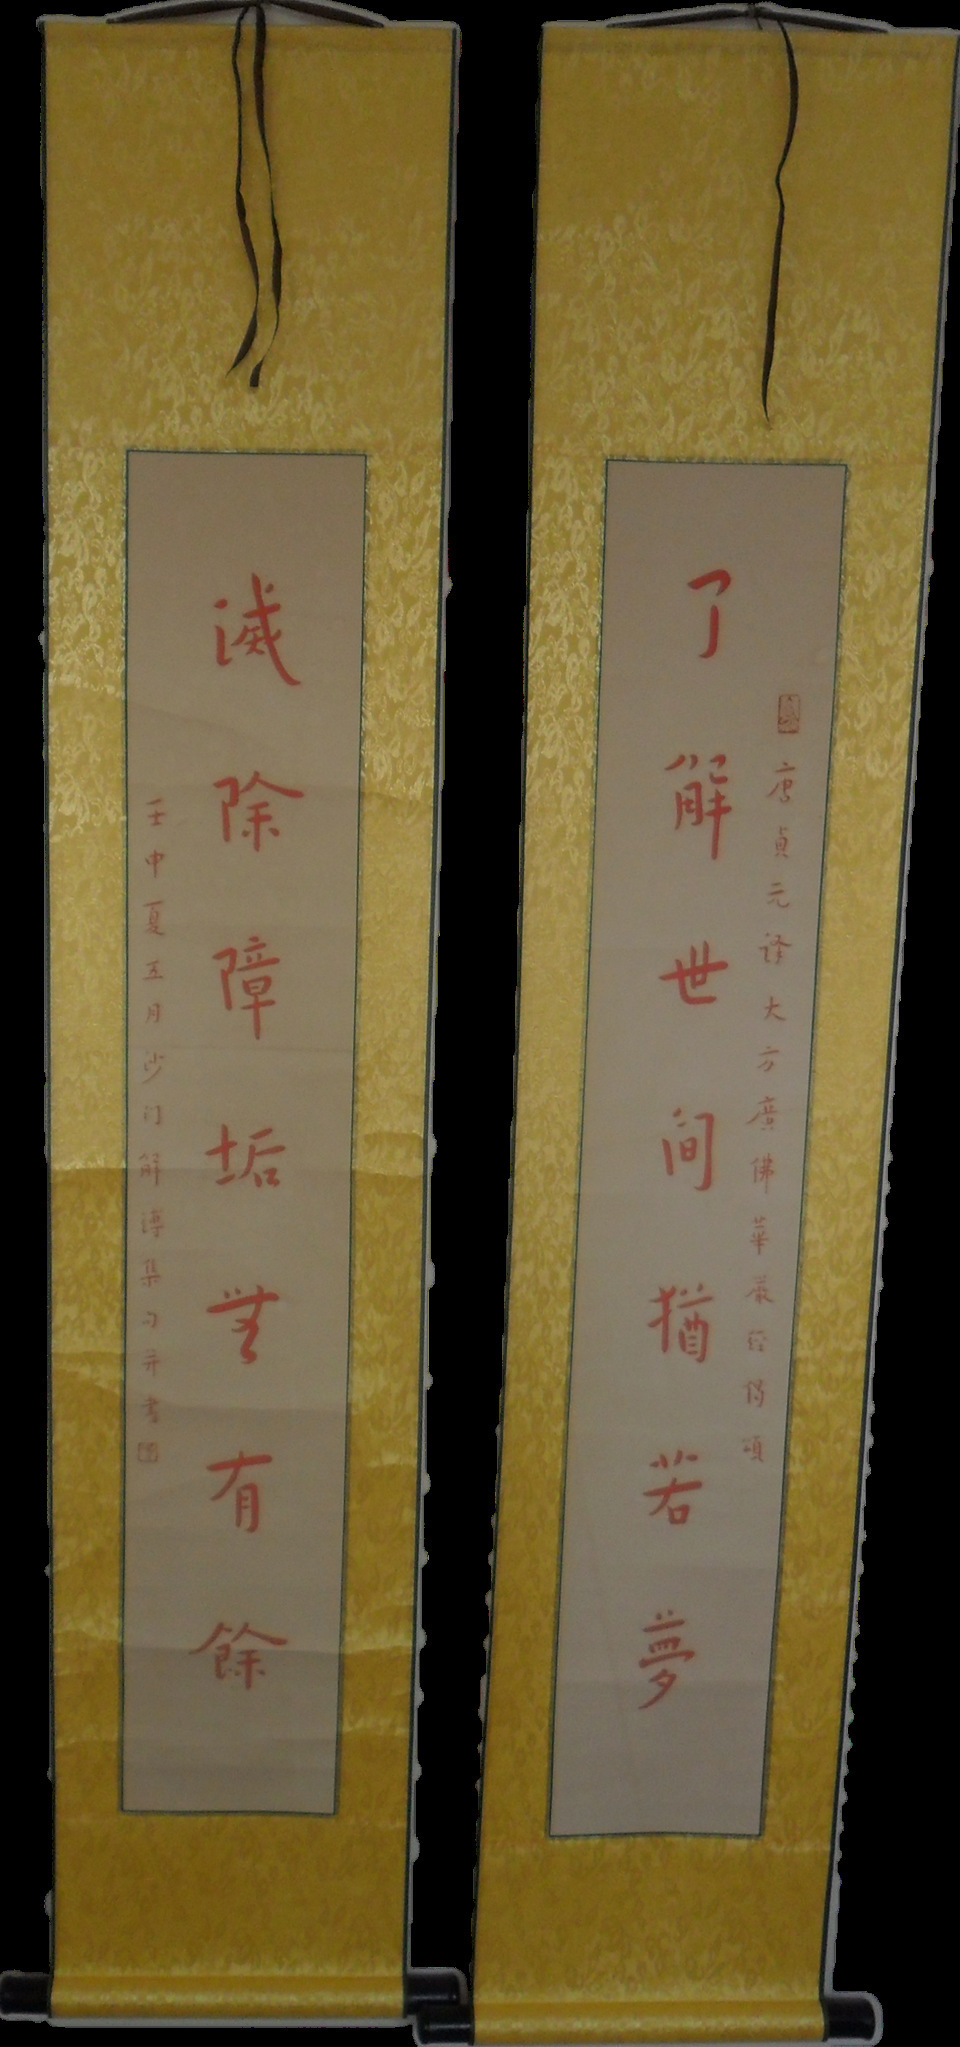 唐貞元译大方廣佛華嚴经偈頌
了解世间猶若夢
滅除障垢無有餘
壬申夏五月沙门解溥集句并書